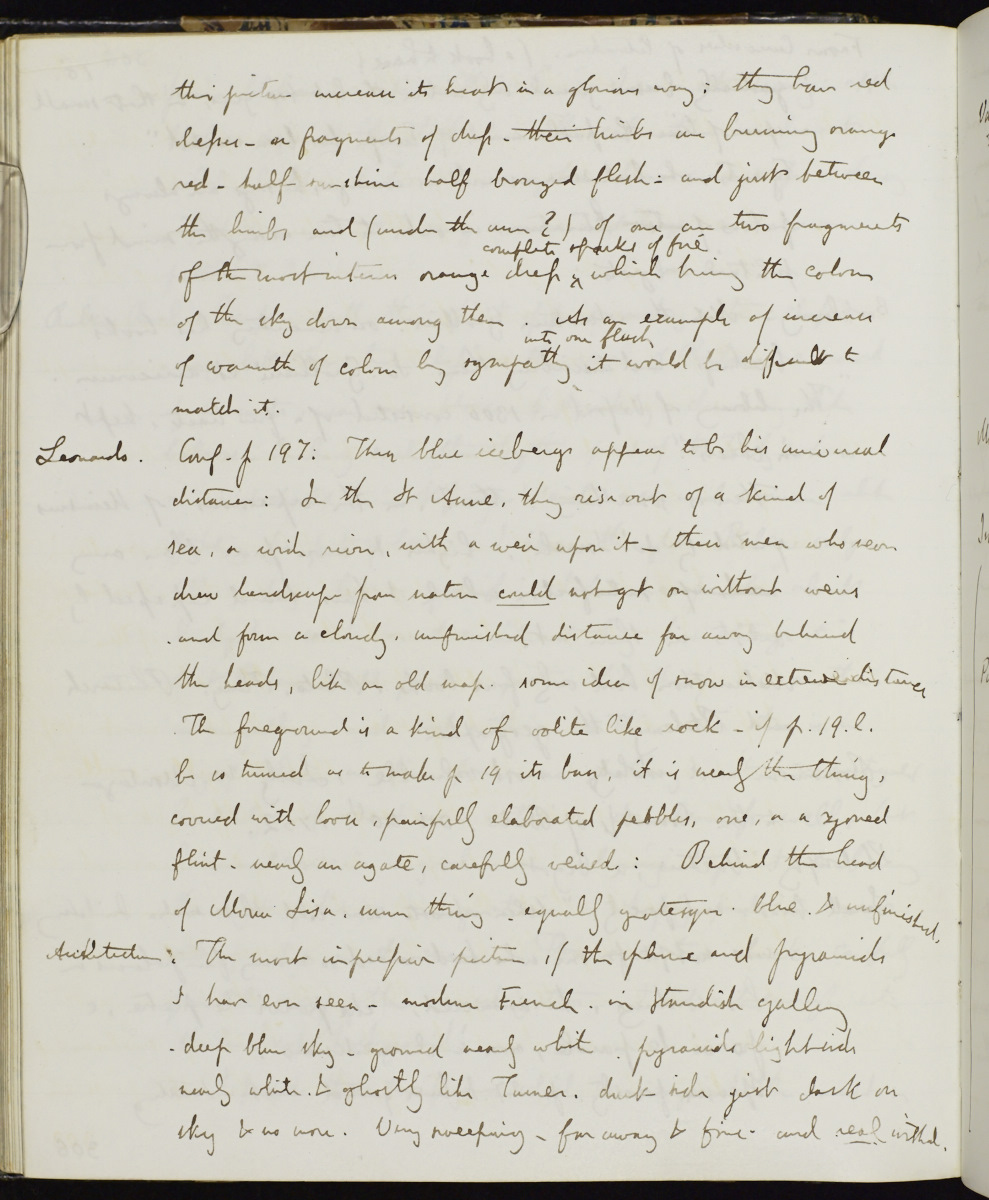 this picture increase its heat in a glorious way: they have red
dresses - or fragments of dress - their limbs are burning orange
red - half sunshine half bronzed flesh: and just between
the limbs and (under the arm?) of one are two fragments
complete sparks of fire
of the most intense orange dress ^ which bring the colour
of the sky down among them. As an example of increase
into one flash,
of warmth of colour by sympathy it would be difficult to
match it.
Leonardo. Conf. p 197: These blue icebergs appear to be his universal
distance: In the St Anne, they rise out of a kind of
sea, or wide river, with a weir upon it - these men who never
drew landscape from nature could not get on without weirs
and form a cloudy, unfinished distance far away behind
the heads, like an old map. some idea of snow in extreme distance
The foreground is a kind of oolite like rock - if p. 19. l.
be so turned as to make p 19 its base, it is nearly the thing,
covered with loose, painfully elaborated pebbles, one, or a zoned
flint - nearly an agate, carefully veined: Behind the head
of Mona Lisa, same thing - equally grotesque. blue. & unfinished.
Architecture: The most impressive picture of the sphinx and pyramids
I have ever seen - modern French. in Standish gallery
- deep blue sky - ground nearly white. pyramids light side
nearly white. & ghostly like Turner. dark side just dark on
sky & no more. Very sweeping - far away & fine - and real withal.